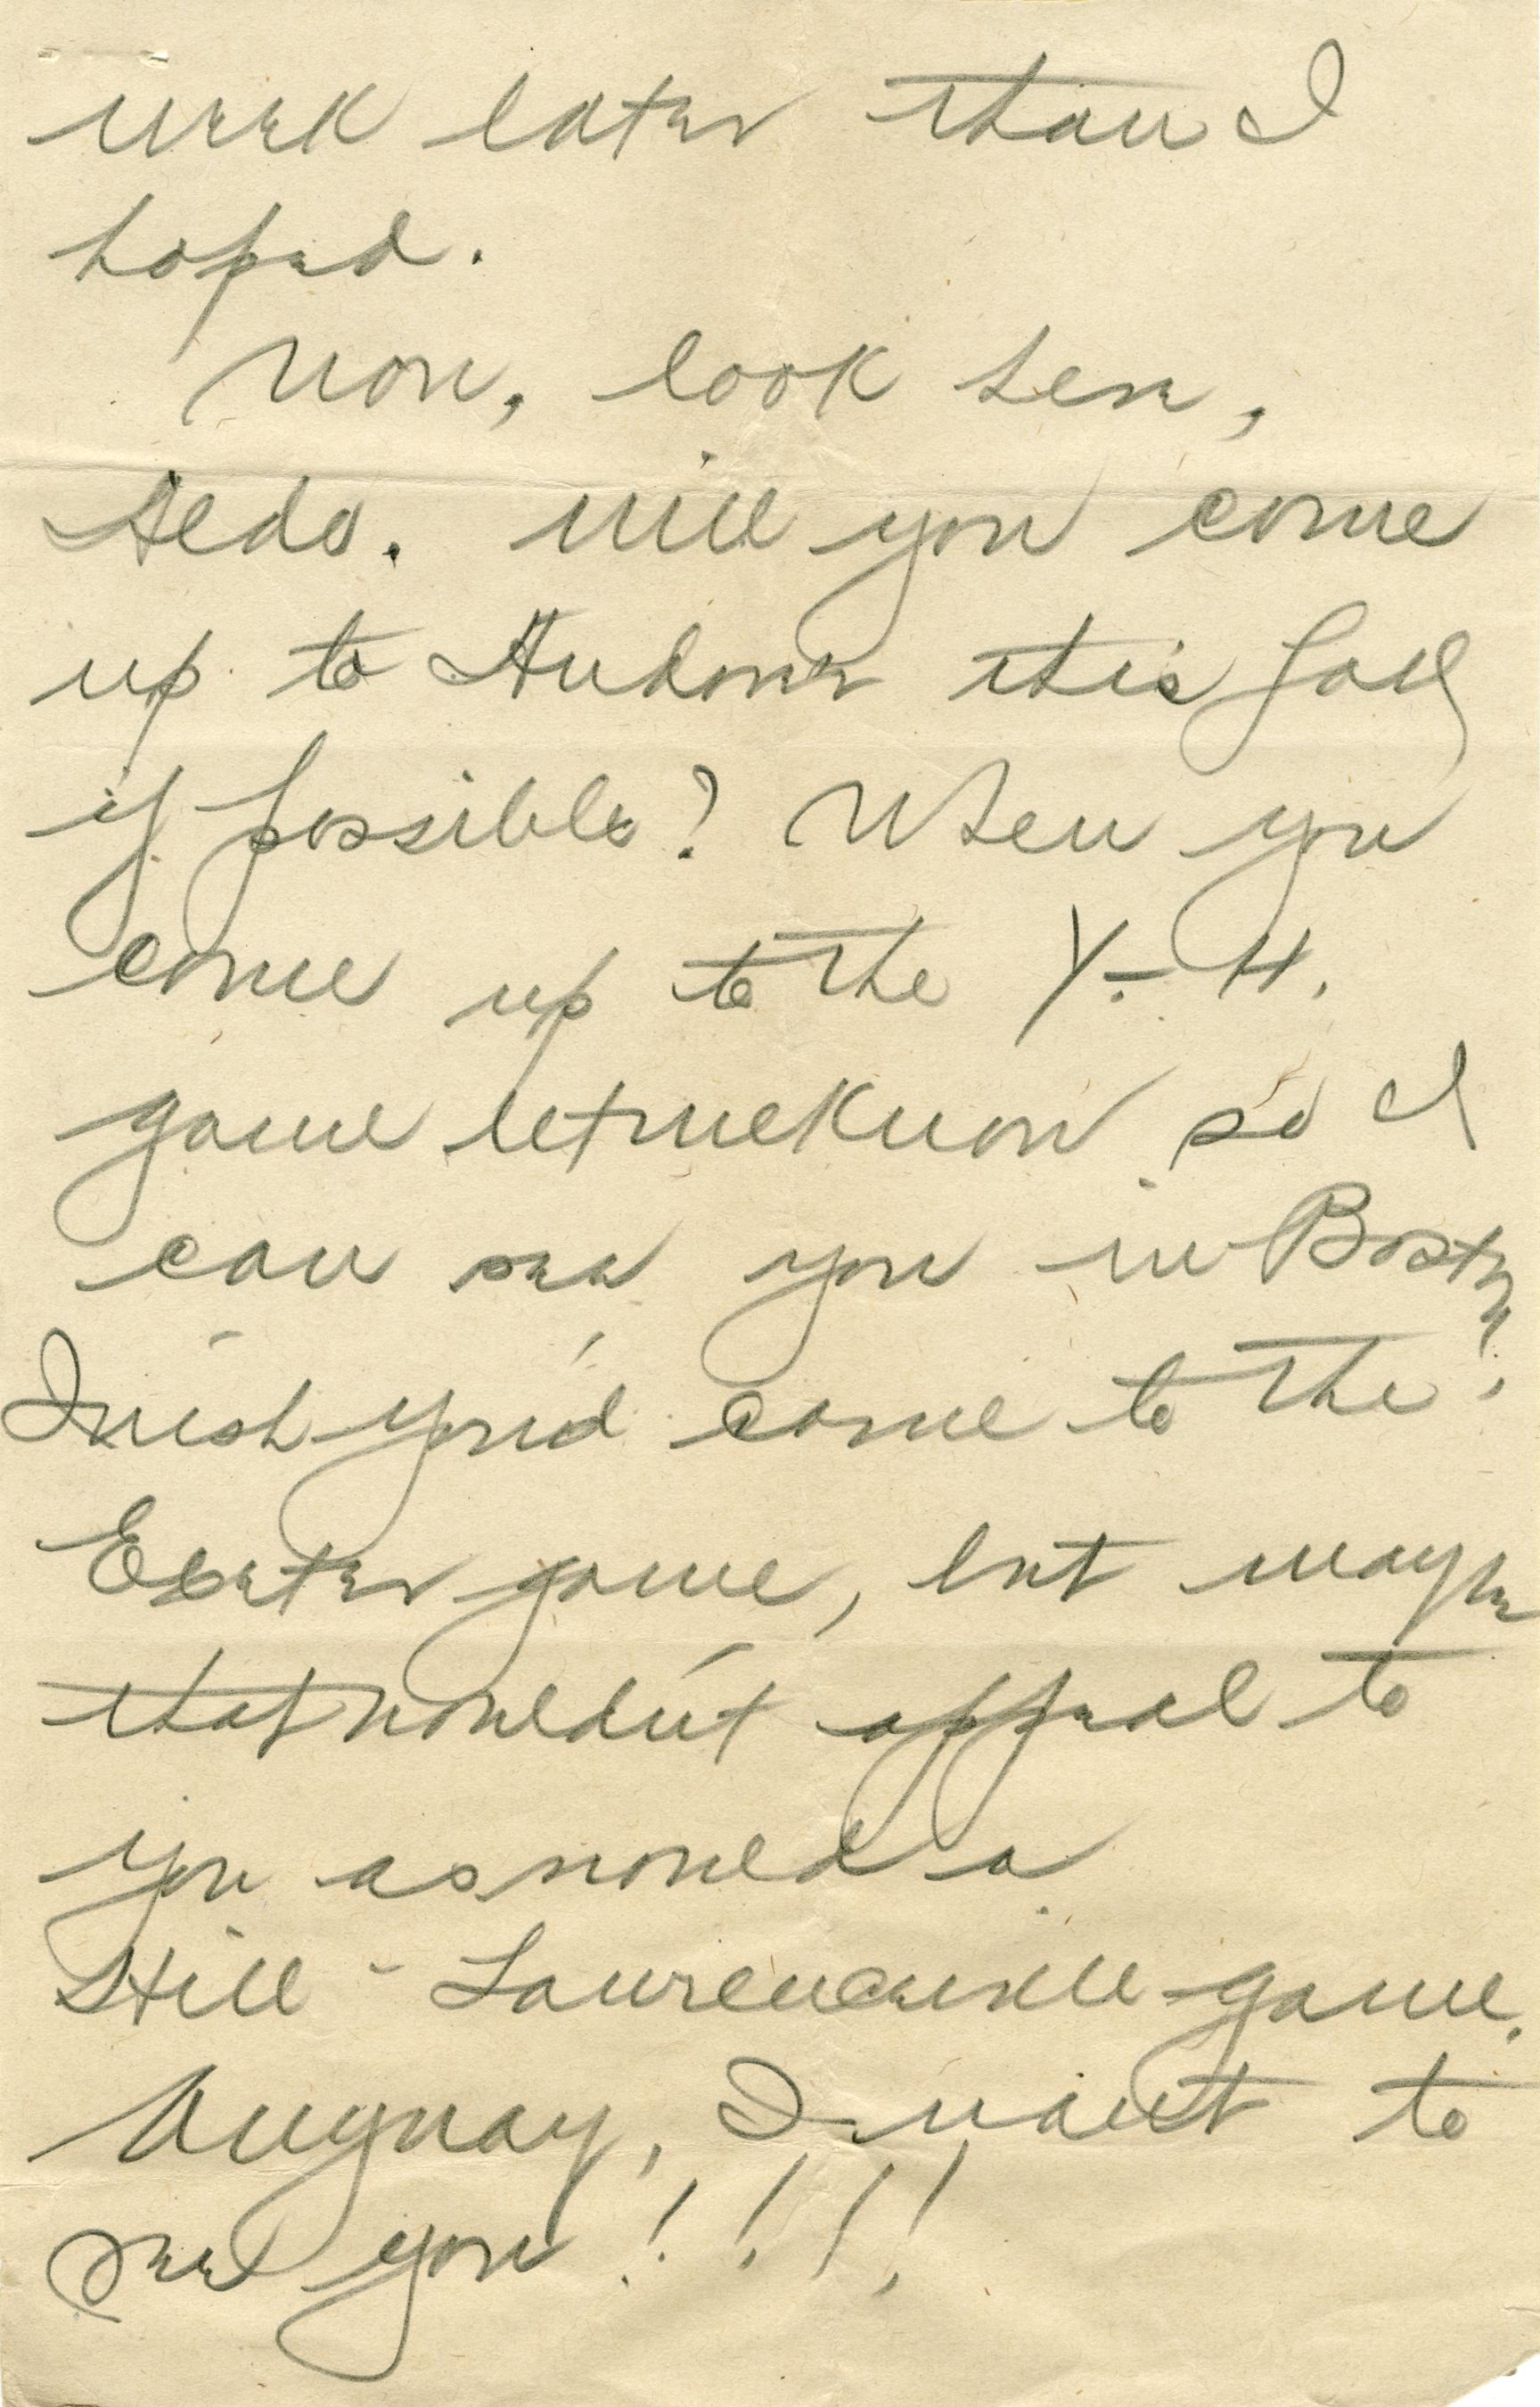 week later than I
hoped.
Now, look here,
Aldo. will you come
up to Andover this fall
if possible? When you
come up to the Y.-H.
game let me know so I
can see you in Boston!
I wish you'd come to the
Exeter game, but maybe
that wouldn't appeal to
you as would a
Hill - Lawrenceville game.
Anyway, I want to
see you!!!!